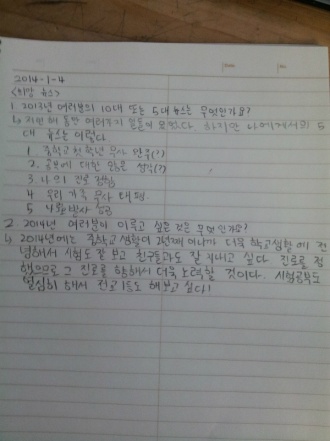 2014-1-4
<희망 뉴스>
1. 2013년 여러분의 10대 또는 5대 뉴스는 무엇인가요?
↳ 지난해 동안 여러가지 일들이 있었다. 하지만 나에게서의 5
대 뉴스는 이렇다
1. 중학교 첫 학년 무사 완주(?)
2. 공부에 대한 안목 상승(?)
3. 나의 진로 결정
4. 우리 가족 무사 태평
5. 나
2. 2014년 여러분이 이루고 싶은 것은 무엇인가요?
↳ 2014년에는 중학교 생활이 2년째 이니까 더욱 학교생활에 전
념해서 시험도 잘 보고 친구들과도 잘 지내고 싶다. 진로를 정
했으므로 그 진로를 향해서 더욱 노력할 것이다. 시험공부도
열심히 해서 전교 1등도 해보고 싶다!